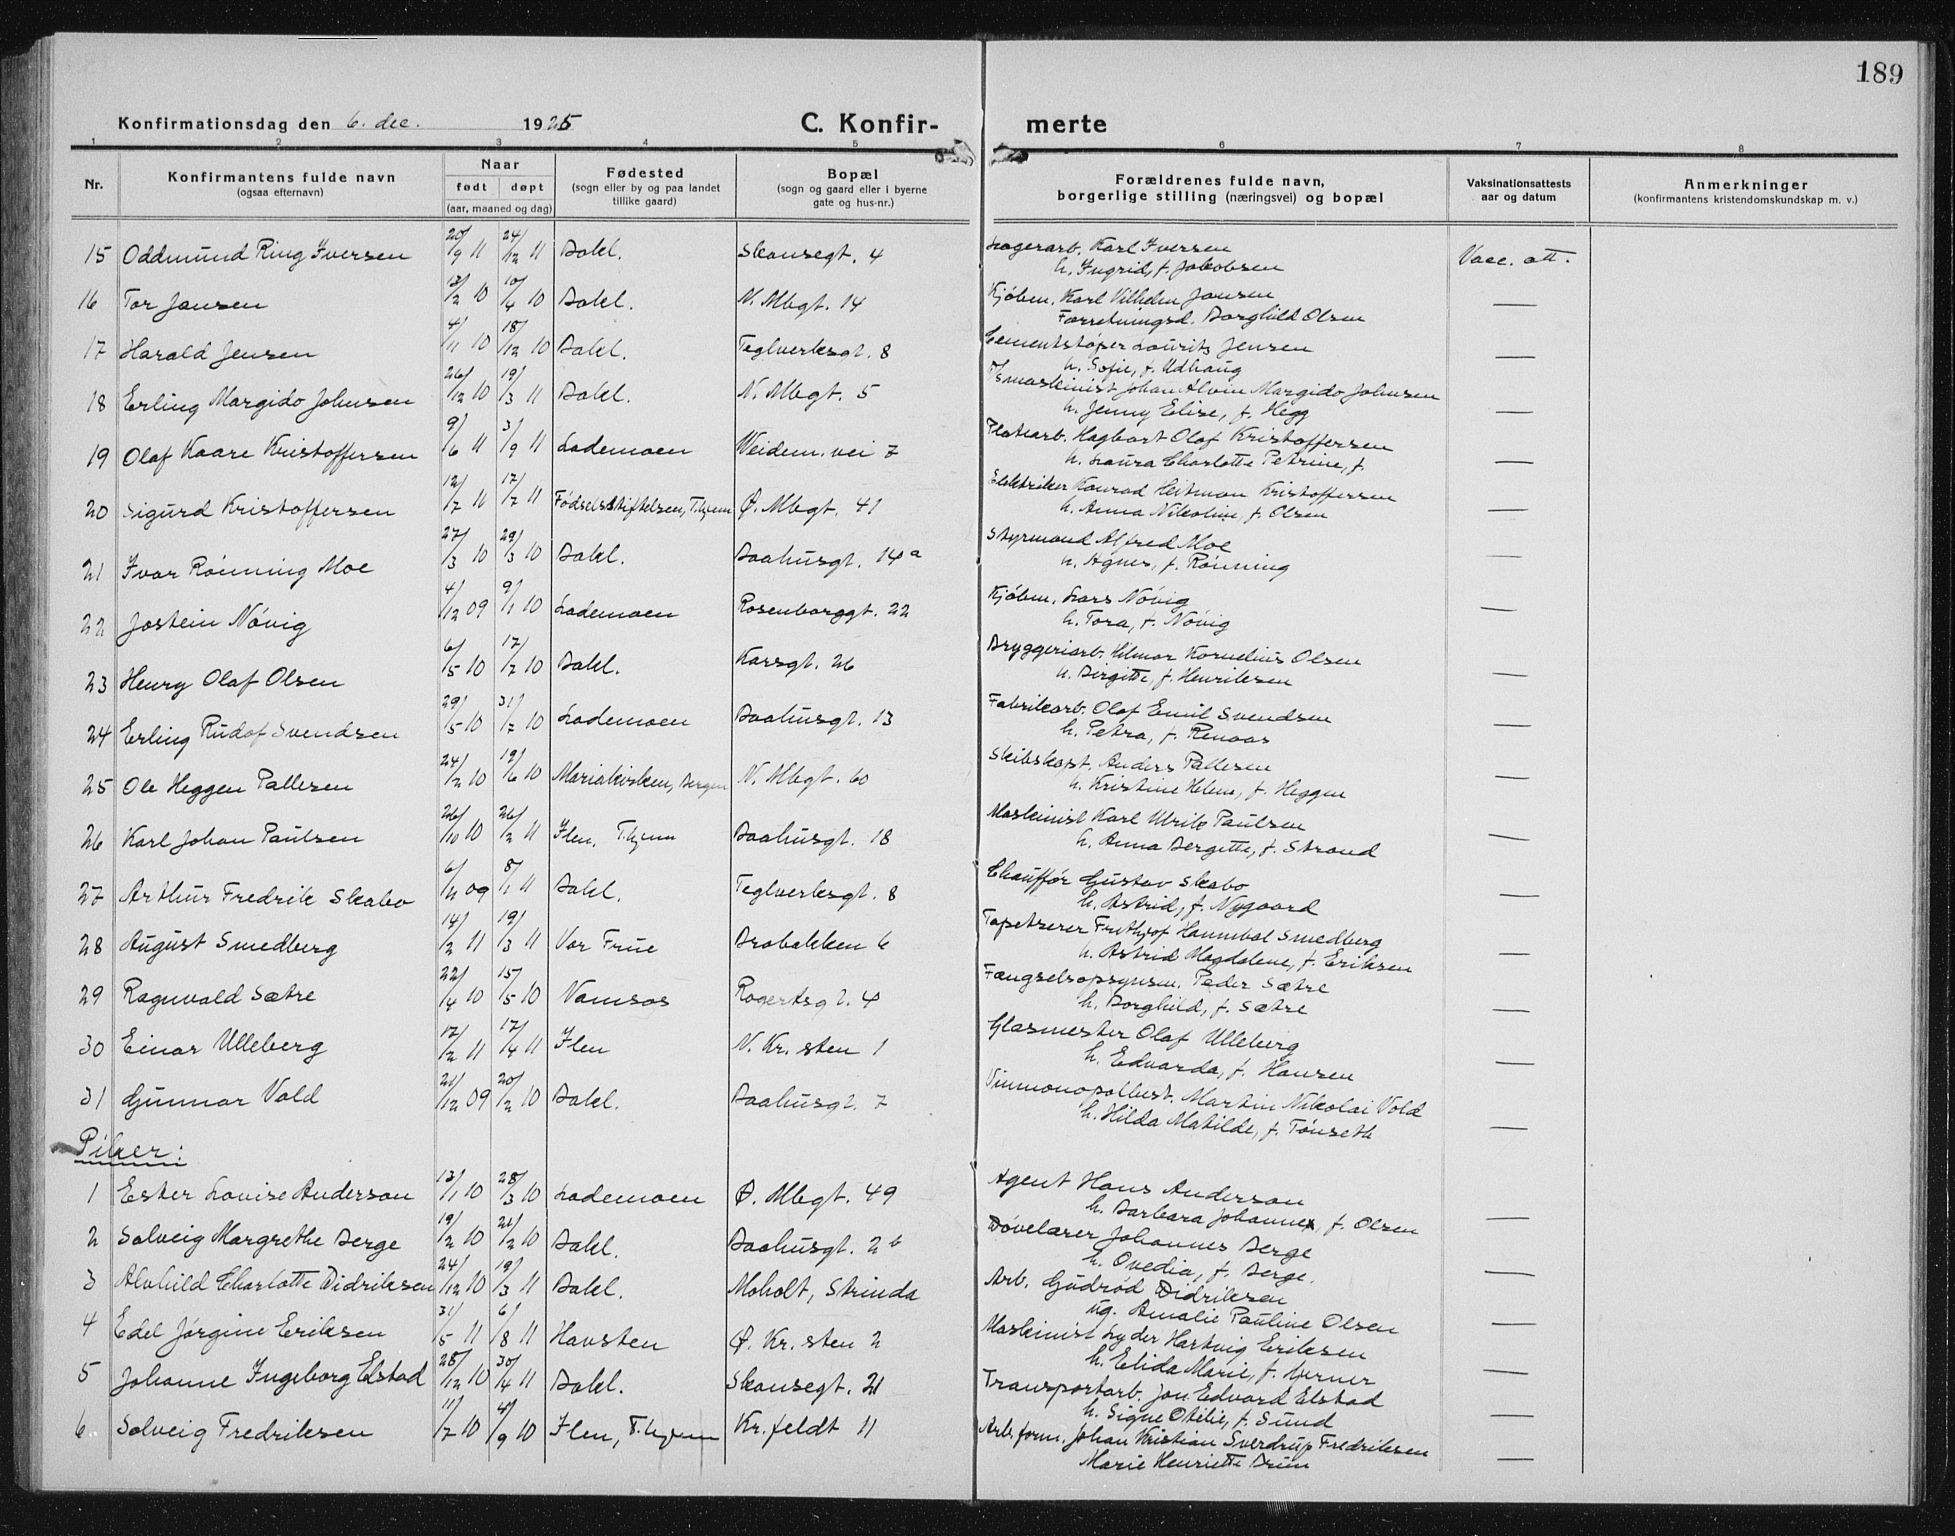 189
Konfirmationsdag den 6. dec. 1925
C. Konfir- merte
1 2 3 4 5 6 7 8
Nr. Konfirmantens fulde navn (ogsaa efternavn) Naar født døpt (aar, maaned og dag) Fødested (sogn eller by og paa landet tillike gaard) Bopæl (sogn og gaard eller i byerne gate og hus-nr.) Forældrenes fulde navn, borgerlige stilling (næringsvei) og bopæl Vaksinationsattests aar og datum Anmerkninger (konfirmantens kristendomskundskap m. v.)
15 Oddmund Ring Iversen 20/9 11 24/12 11 Bakl. Skansegt. 4 Lagerarb. Karl Iversen Vacc. att.
h. Ingrid, f. Jakobsen
16 Tor Jansen 13/2 10 10/4 10 Bakl. N. Mbgt. 14 Kjøbm. Karl Vilhelm Jansen —
Forretningsd. Borghild Olsen
17 Harald Jensen 4/11 10 18/12 10 Bakl. Teglverksgt. 8 Cementstøper Laurits Jensen —
h. Sofie, f. Udhaug
18 Erling Margido Johnsen 26/12 10 19/3 11 Bakl. N. Mbgt. 5 Johan Alvin Margido Johnsen —
h. Jenny Elise, f. Hegg
19 Olaf Kaare Kristoffersen 9/6 11 3/9 11 Lademoen Weidem. vei 7 Platearb. Hagbart Olaf Kristoffersen —
h. Laura Charlotte Petrine, f.
20 Sigurd Kristoffersen 12/7 11 17/7 11 Fødselsstiftelsen, T.hjem Ø. Mbgt. 41 Elektriker Konrad Heitman Kristoffersen —
h. Anna Nikoline, f. Olsen
21 Ivar Rønning Moe 27/3 10 29/3 10 Bakl. Baahusgt. 14a Styrmand Alfred Moe —
h. Agnes, f. Rønning
22 Jostein Nøvig 4/12 09 9/1 10 Lademoen Rosenborggt. 22 Kjøbm. Lars Nøvig —
h. Tora, f. Nøvig
23 Henry Olaf Olsen 6/5 10 17/7 10 Bakl. Karsgt. 26 Bryggeriarb. Hilmar Kornelius Olsen —
h. Birgitte, f. Henriksen
24 Erling Rudof Svendsen 29/5 10 31/7 10 Lademoen Baahusgt. 13 Fabrikarb. Olaf Emil Svendsen —
h. Petra, f. Renaas
25 Ole Heggen Pallesen 24/2 10 19/6 10 Mariakirken, Bergen N. Mbgt. 60 Skibskapt. Anders Pallesen —
h. Kristine Helene, f. Heggen
26 Karl Johan Paulsen 26/10 10 26/2 11 Ilen, T.hjem Baahusgt. 18 Maskinist Karl Ulrik Paulsen —
h. Anna Bergette, f. Strand
27 Arthur Fredrik Skabo 6/11 09 8/1 11 Bakl. Teglverksgt. 8 Chauffør Gustav Skabo —
h. Astrid, f. Nygaard
28 August Smedberg 14/2 11 19/3 11 Vor Frue Brabakken 6 Tapetserer Frithjof Hannibal Smedberg —
h. Astrid Magdalene, f. Eriksen
29 Ragnvald Sætre 22/4 10 15/5 10 Namsos Rogertsgt. 4 Fængselsopsynsm. Peder Sætre —
h. Borghild, f. Sætre
30 Einar Ulleberg 17/2 11 17/4 11 Ilen N. Kr. sten 1 Glasmester Olaf Ulleberg —
h. Edvarda, f. Hansen
31 Gunnar Vold 21/12 09 20/2 10 Bakl. Baahusgt. 7 Vinmonopolbest. Martin Nikolai Vold —
h. Hilda Matilde, f. Tønseth
Piker:
1 Ester Lovise Anderson 13/1 10 28/3 10 Lademoen Ø. Mbgt. 49 Agent Hans Anderson —
h. Barbara Johanne, f. Olsen
2 Solveig Margrethe Berge 19/2 10 21/2 10 Bakl. Baahusgt. 2b Døvelærer Johannes Berge —
h. Ovedia, f. Berge.
3 Alvhild Charlotte Didriksen 24/12 10 19/3 11 Bakl. Moholt, Strinda Arb. Gudrød Didriksen —
ug. Amalie Pauline Olsen
4 Edel Jørgine Eriksen 31/5 11 6/8 11 Havsten Ø. Kr. sten 2 Maskinist Lyder Hartvig Eriksen —
h. Elida Marie, f. Gerner
5 Johanne Ingeborg Elstad 28/12 10 30/4 11 Bakl. Skansegt. 21 Transportarb. Jon Edvard Elstad —
h. Signe Otilie, f. Sund
6 Solveig Fredriksen 11/7 10 4/9 10 Ilen, T.hjem Kr. feldt 11 Arb.form. Johan Kristian Sverdrup Fredriksen —
Marie Henriette Brun